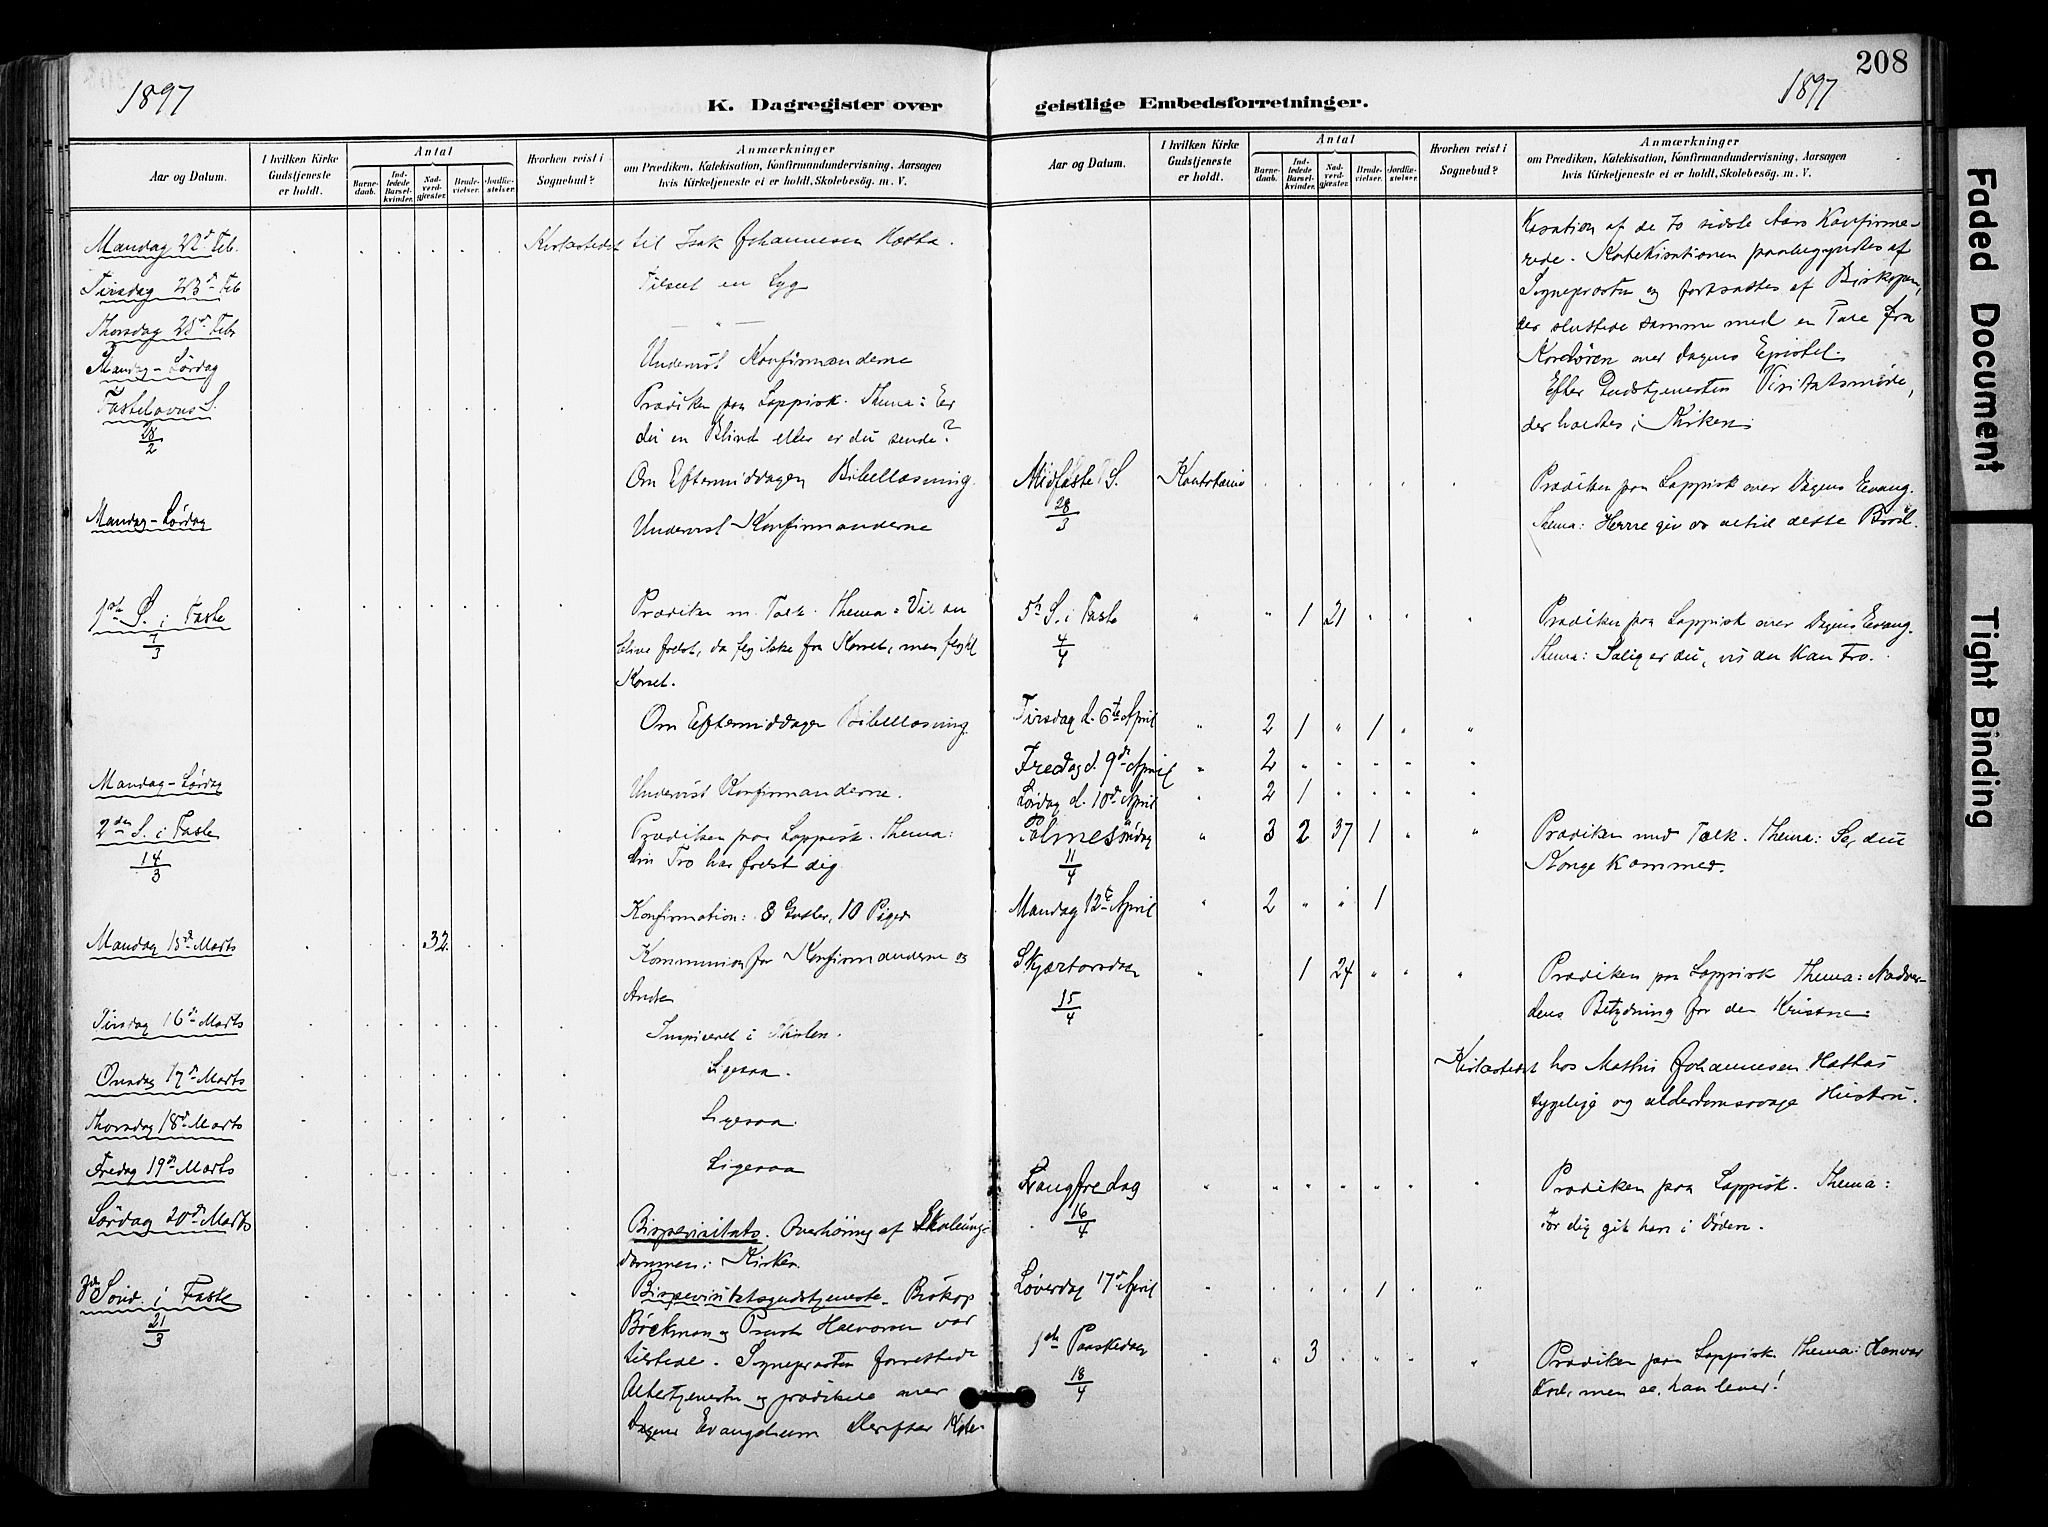 208
1897
1897
K. Dagregister over
geistlige Embedsforretninger.
Aar og Datum.
I hvilken Kirke Gudstjeneste er holdt.
Antal
Barnedaab.
Indledede Barselkvinder.
Nadverdgjester.
Brudevielser.
Jordfæstelser.
Hvorhen reist i Sognebud?
Anmærkninger
om Prædiken, Katekisation, Konfirmandundervisning, Aarsagen
hvis Kirketjeneste ei er holdt, Skolebesøg. m. V.
Mandag 22d Feb. Kirkestedet til Isak Johannesen Hætta.
Tirsdag 23d Feb Tilseet en Syg
Thorsdag 25d Feb — " —
Mandag-Lørdag Undervist Konfirmanderne
Fastelavns S. Prædiken paa Lappisk. Thema: Er
28/2 du en Blind eller er du seende?
Om Eftermiddagen Bibellæsning.
Mandag-Lørdag Undervist Konfirmanderne
1ste S. i Faste Prædiken m. Tolk. Thema: Vil du
7/3 blive frelst, da fly ikke fra Korset, men flygt
Korset.
Om Eftermiddagen Bibellæsning.
Mandag-Lørdag Undervist Konfirmanderne.
2den S. i Faste Prædiken paa Lappisk. Thema:
14/3 Din Tro har frelst dig
Konfirmation: 8 Gutter, 10 Piger
Mandag 15d Marts 32 Kommunion for Konfirmanderne og
Andre
Tirsdag 16d Marts Inspiceret i Skolen.
Onsdag 17d Marts Ligesaa.
Thorsdag 18d Marts Ligesaa.
Fredag 19d Marts Ligesaa
Lørdag 20d Marts Bispevisitats. Overhøring af Skoleung-
dommen i Kirken
3die Sønd. i Faste Bispevisitatsgudstjeneste. Biskop
21/3 Bøckman og Provst Halvorsen var
tilstede. Sognepræsten forrettede
Altertjenesten og prædikede over
Dagens Evangelium Derefter Kate-
Aar og Datum.
I hvilken Kirke Gudstjeneste er holdt.
Antal
Barnedaab.
Indledede Barselkvinder.
Nadverdgjester.
Brudevielser.
Jordfæstelser.
Hvorhen reist i Sognebud?
Anmærkninger
om Prædiken, Katekisation, Konfirmandundervisning, Aarsagen
hvis Kirketjeneste ei er holdt, Skolebesøg. m. V.
kisation af de to sidste Aars Konfirme-
rede. Katekisationen paabegyndtes af
Sognepræsten og fortsattes af Biskopen,
der sluttede samme med en Tale fra
Kordøren over Dagens Epistel.
Efter Gudstjenesten Visitatsmøde,
der holdtes i Kirken.
Midfaste S. Kautokeino Prædiken paa Lappisk over Dagens Evang.
28/3 Thema: Herre giv os altid dette Brød.
5te S. i Faste " " 1 21 " " " Prædiken paa Lappisk over Dagens Evang.
4/4 Thema: Salig er du, vis du kan tro.
Tirsdag d. 6te April " 2 1 " 1 " "
Fredag d. 9de April " 2 " " " " "
Lørdag d. 10de April " 2 1 " " " "
Palmesøndag " 3 2 37 1 " " Prædiken med Tolk. Thema: Se, din
11/4 Konge kommer.
Mandag 12te April " 2 " " 1
Skjærtorsdag " 1 24 " " " Prædiken paa Lappisk Thema: Nadver-
15/4 dens Betydning for den Kristne.
Kirkestedet hos Mathis Johannesen Hættas
sygelige og alderdomssvage Hustru.
Langfredag " " " " " " " Prædiken paa Lappisk. Thema:
16/4 For dig gik han i Døden.
Løverdag 17d April " " " " 1 " "
1ste Paaskedag " " 3 " " " " Prædiken paa Lappisk Thema: Han var
18/4 død, men se, han lever!
Faded Document
Tight Binding